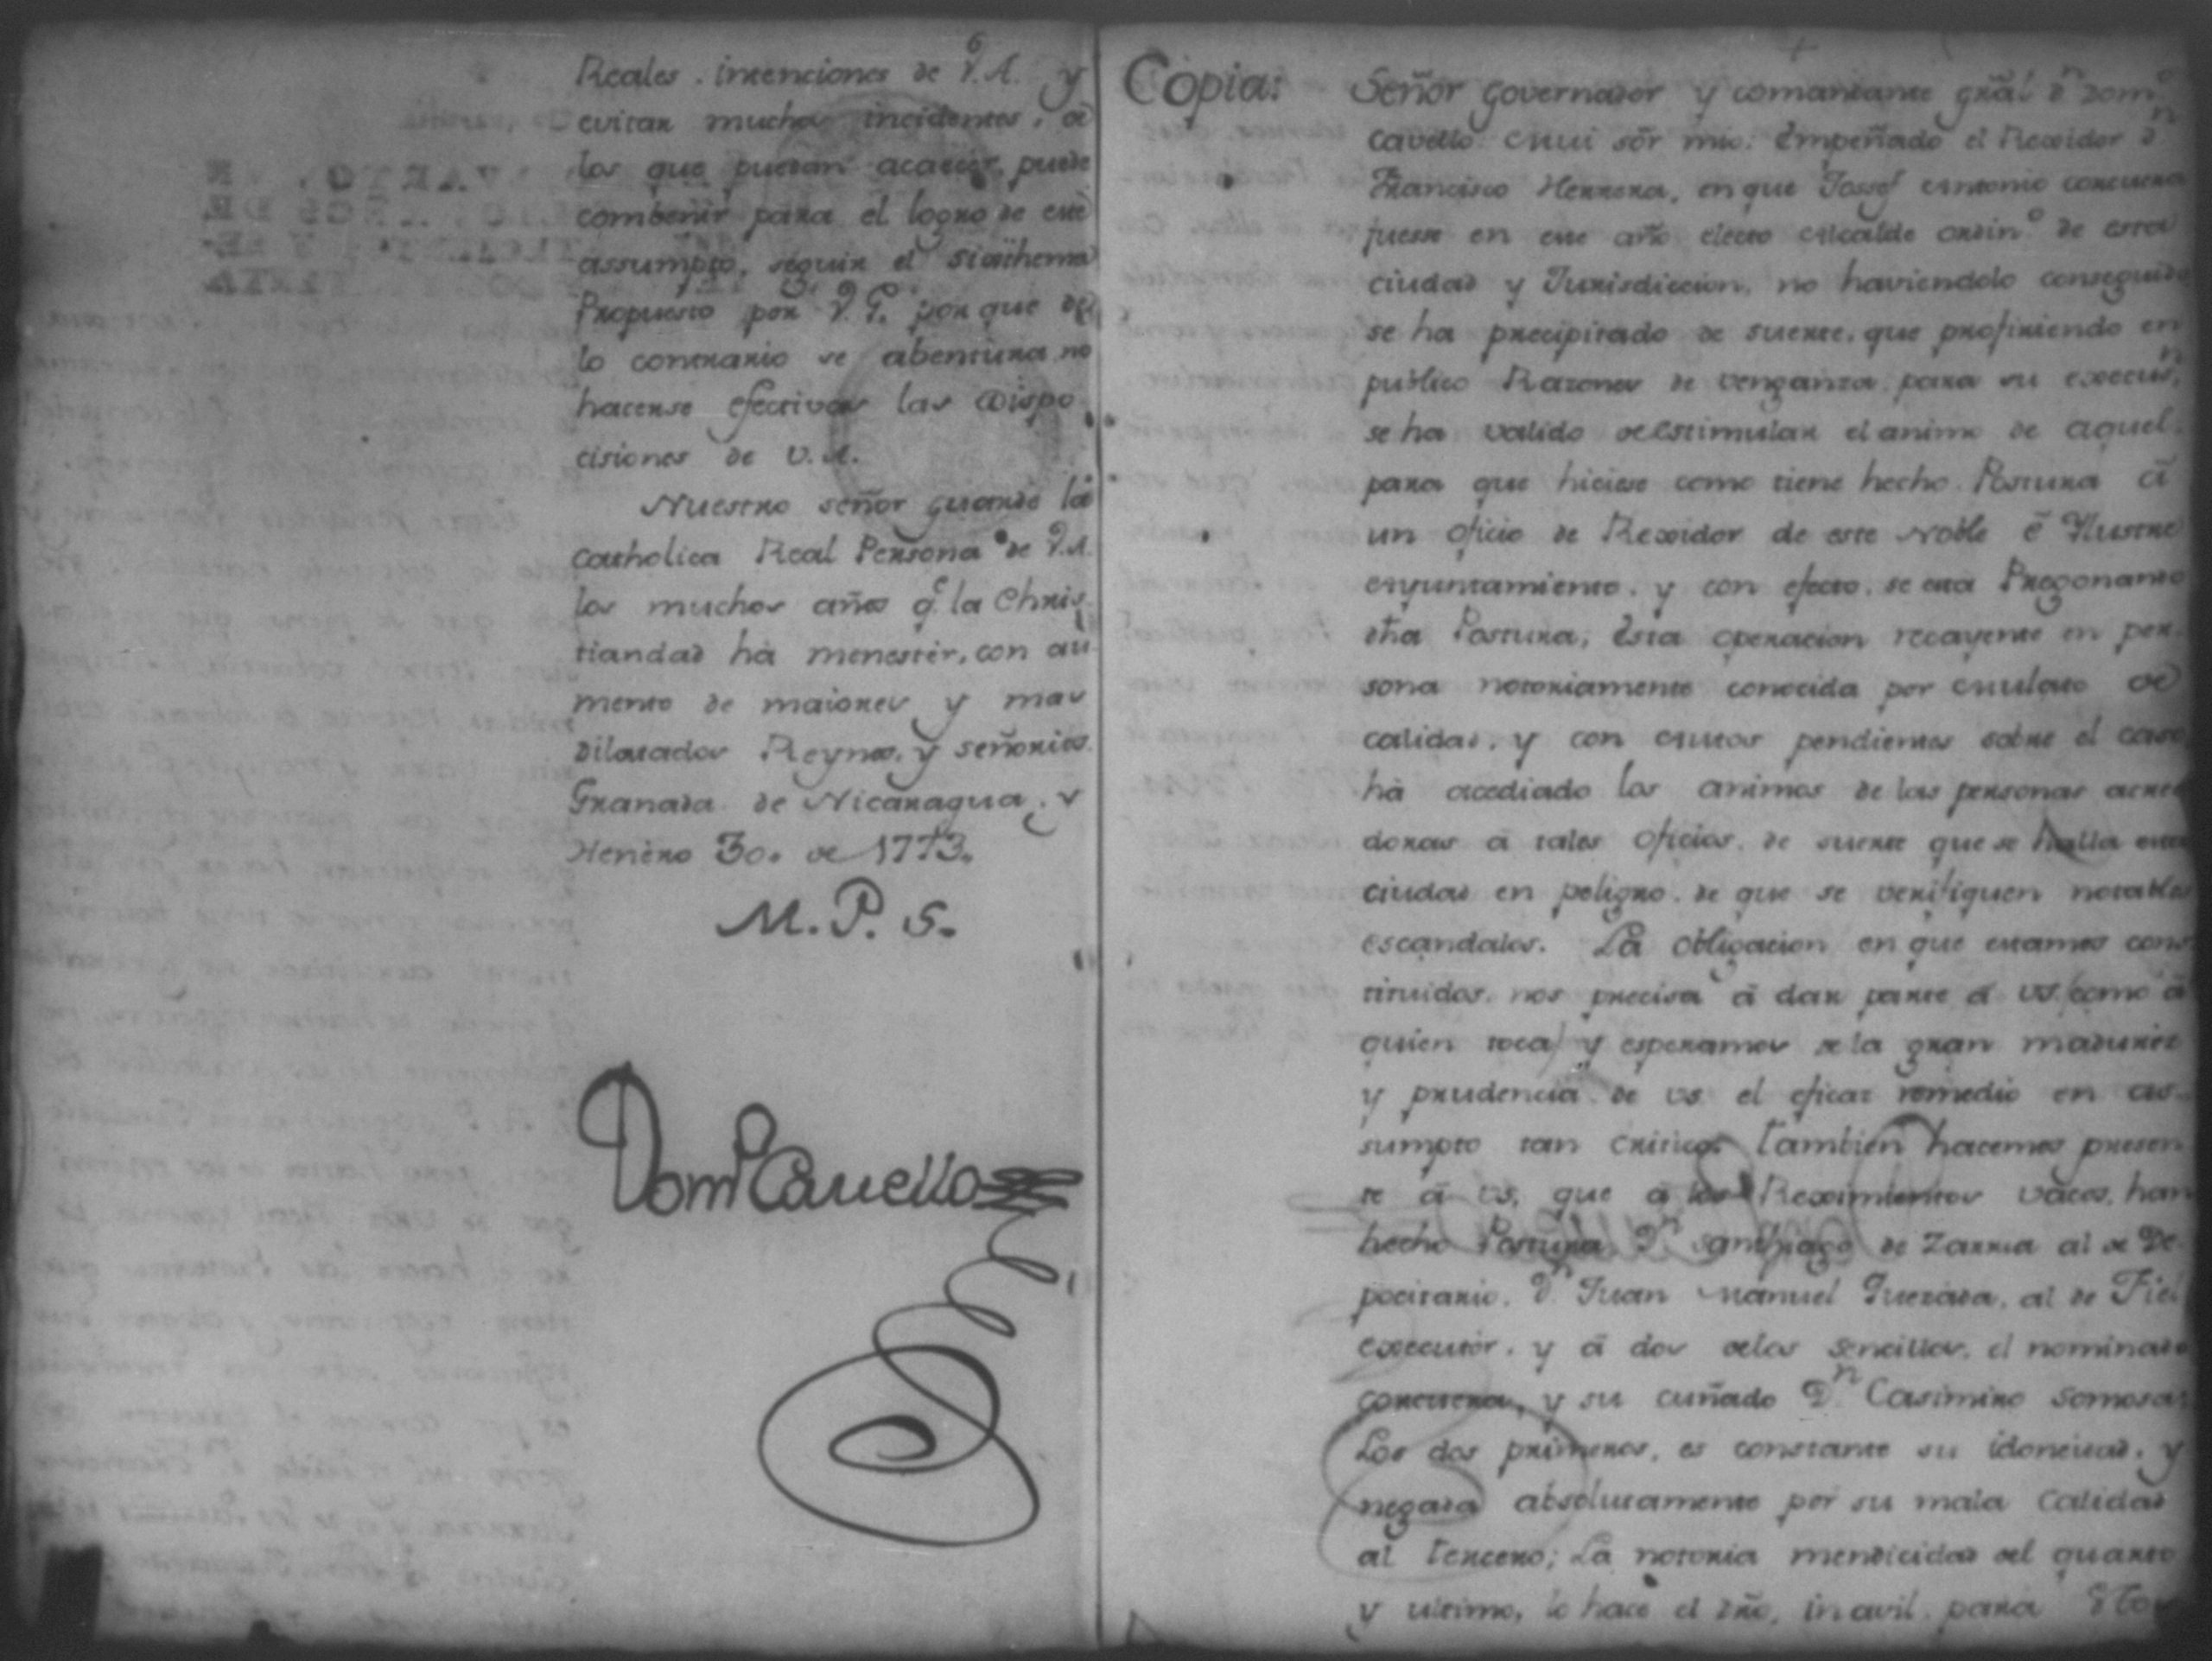 Reales intenciones de V.A. y
evitar muchos incidentes, de
los que puedan acaecer, puede
combenir para el logro de este
assumpto, seguir el sisthema
Propuesto por V.G. porque de
lo contrario se abentura no
hacerse efectivas las dispo
cisiones de V.A.
Nuestro señor guarde la
catholica Real Persona de V.A.
los muchos años q.e la Chris
tiandad há menester, con au
mento de maiores y mas
dilatados Reynos, y señorios.
Granada de Nicaragua, y
Henero 30. de 1773.
M. P. S.
Dom.o Cavello
Copia:
Señor Governador y comandante grāl d.n Dom.o
Cavello. Mui sōr mio: Empeñado el Rexidor d.n
Francisco Herrera, en que Jossef Antonio Corcuera
fuesse en este año electo Alcalde ordin.o de esta
ciudad y Jurisdiccion, no haviendolo conseguido
se ha precipitado de suerte, que profiriendo en
publico Razones de venganza, para su execus.n
se ha valido de estimular el animo de aquel,
para que hiciese como tiene hecho Postura á
un oficio de Rexidor de este Noble é Ylustre
Ayuntamiento, y con efecto, se esta Pregonando
dha Postura; Esta operacion recayente en per
sona notoriamente conocida por Mulato de
calidad, y con Autos pendientes sobre el caso,
há acediado los animos de las personas acree
doras á tales oficios, de suerte que se halla esta
ciudad en peligro de que se verifiquen notables
escandalos. La obligacion en que estamos cons
tituidos, nos precisa á dar parte á VS. (como á
quien toca) y esperamos de la gran madurez
y prudencia de VS. el eficaz remedio en as-
sumpto tan critico. Tambien hacemos presen
te á VS, que á los Rexim.ientos vacos, han
hecho Postura D.n Santhiago de Zarria al de De
pocitario, D.n Juan Manuel Quezada, al de Fiel
executor, y á dos de los sencillos, el nominado
Corcuera, y su cuñado D.n Casimiro Somosa:
Los dos primeros, es constante su idoneidad, y
negada absolutamente por su mala Calidad
al Tercero; La notoria mendicidad del quarto
y ultimo, lo hace el dho, inavil para